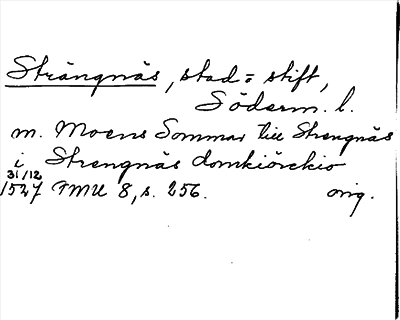 Strängnäs, stad = stift,
Söderm. l.
m. Moens Sommar till Strengnäs
i Strengnäs domkiörckio
31/12
1527 FMU 8, s. 256. orig.